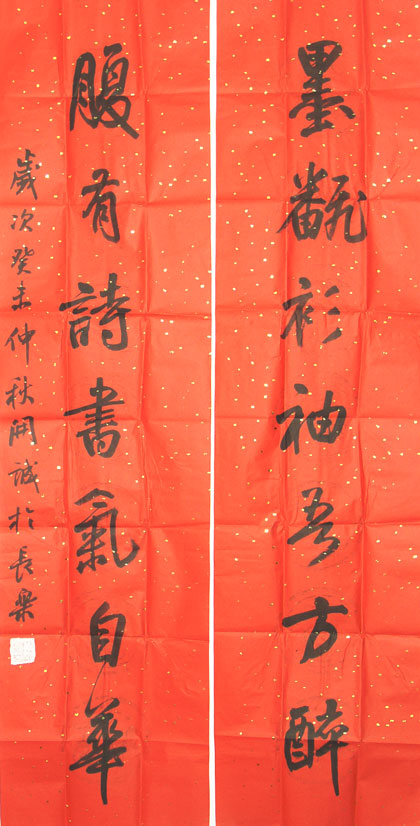 墨翻衫袖吾方醉
腹有詩書氣自華
歲次癸未仲秋開誠於長樂